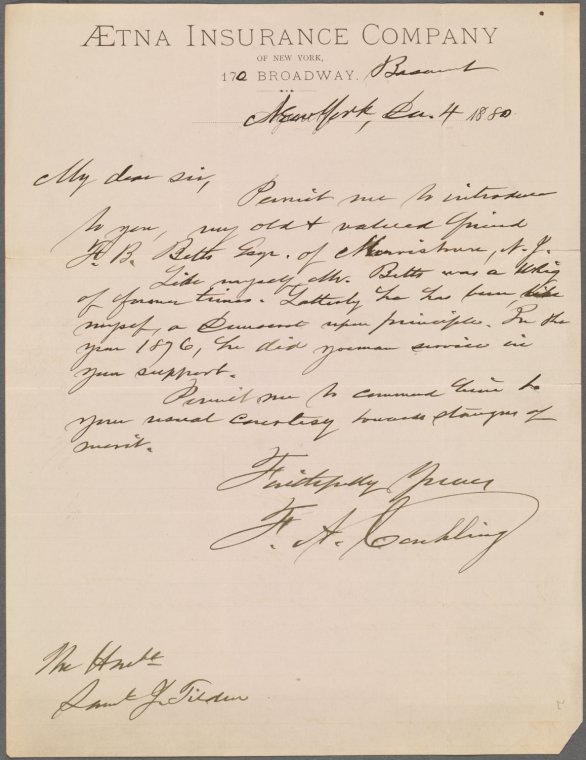 ÆTNA INSURANCE COMPANY
OF NEW YORK,
170 BROADWAY. Basement
New York, Dec. 4 1880
My dear sir,
Permit me to introduce
to you, my old & valued friend
F. B. Betts Esqr. of Morristown, N. J.
Like myself, Mr. Betts was a Whig
of former times. Latterly he has been, like
myself, a Democrat upon principle. In the
year 1876, he did yeoman service in
your support.
Permit me to commend him to
your usual courtesy towards strangers of
merit.
Faithfully Yours
F. A. Conkling
The Honble
Saml J. Tilden